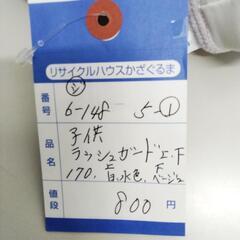 リサイクルハウスかざぐるま
番号 6-148 5-①
品名 子供
ラッシュガード上、下
170、上白、水色、下ベージュ
値段 800円